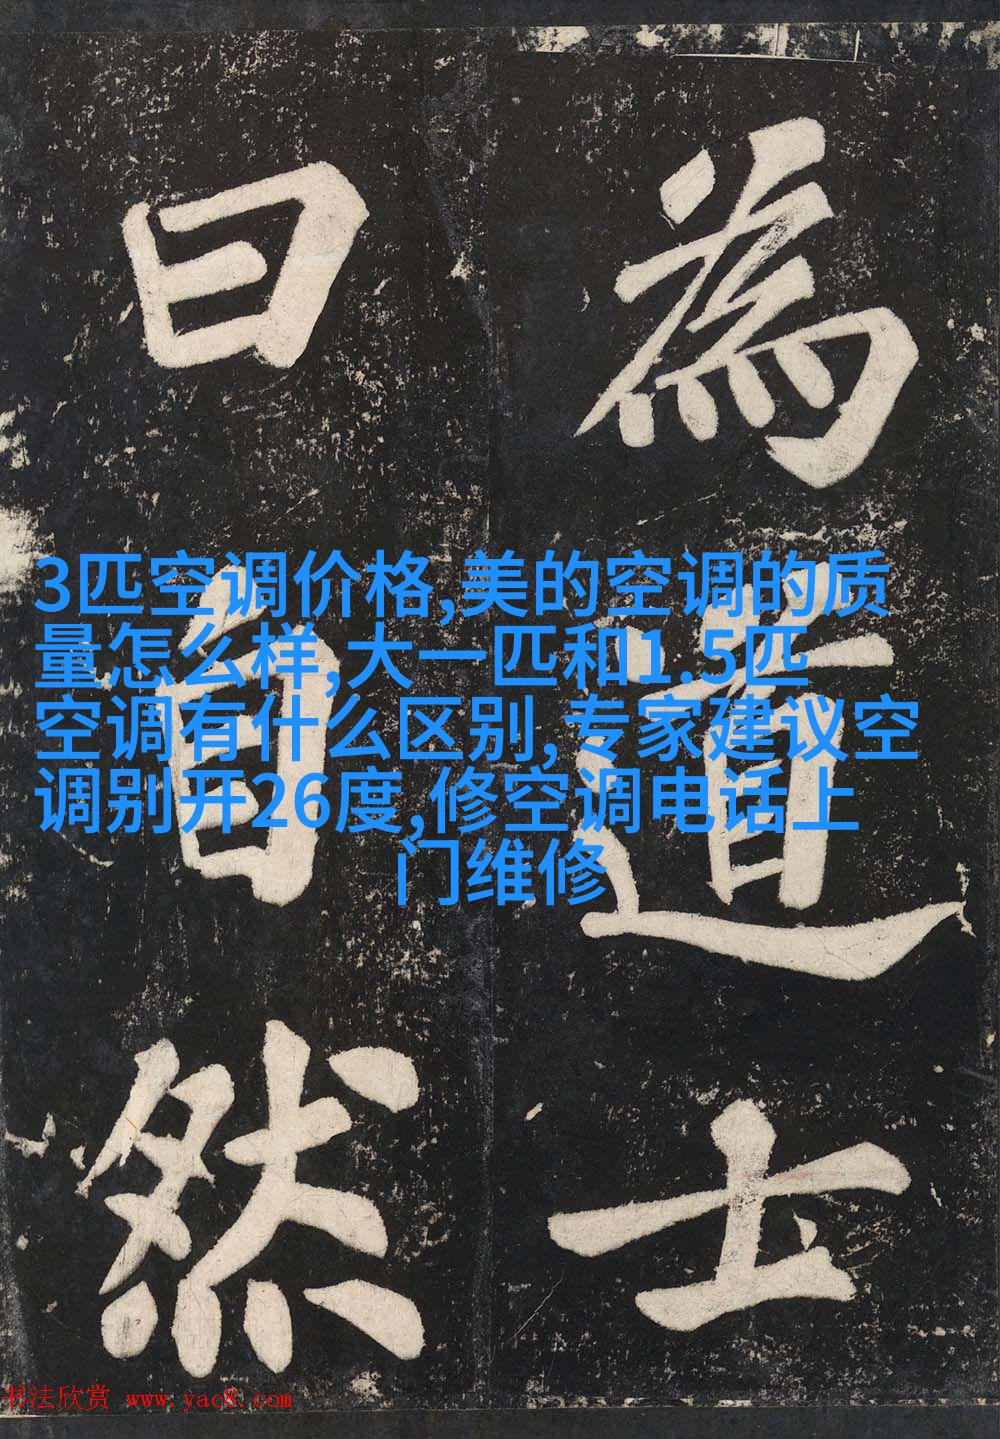 為道士
曰自然
3匹空调价格,美的空调的质
量怎么样,大一匹和1.5匹
空调有什么区别,专家建议空
调别开26度,修空调电话上
门维修
书法欣赏 www.yac8.com